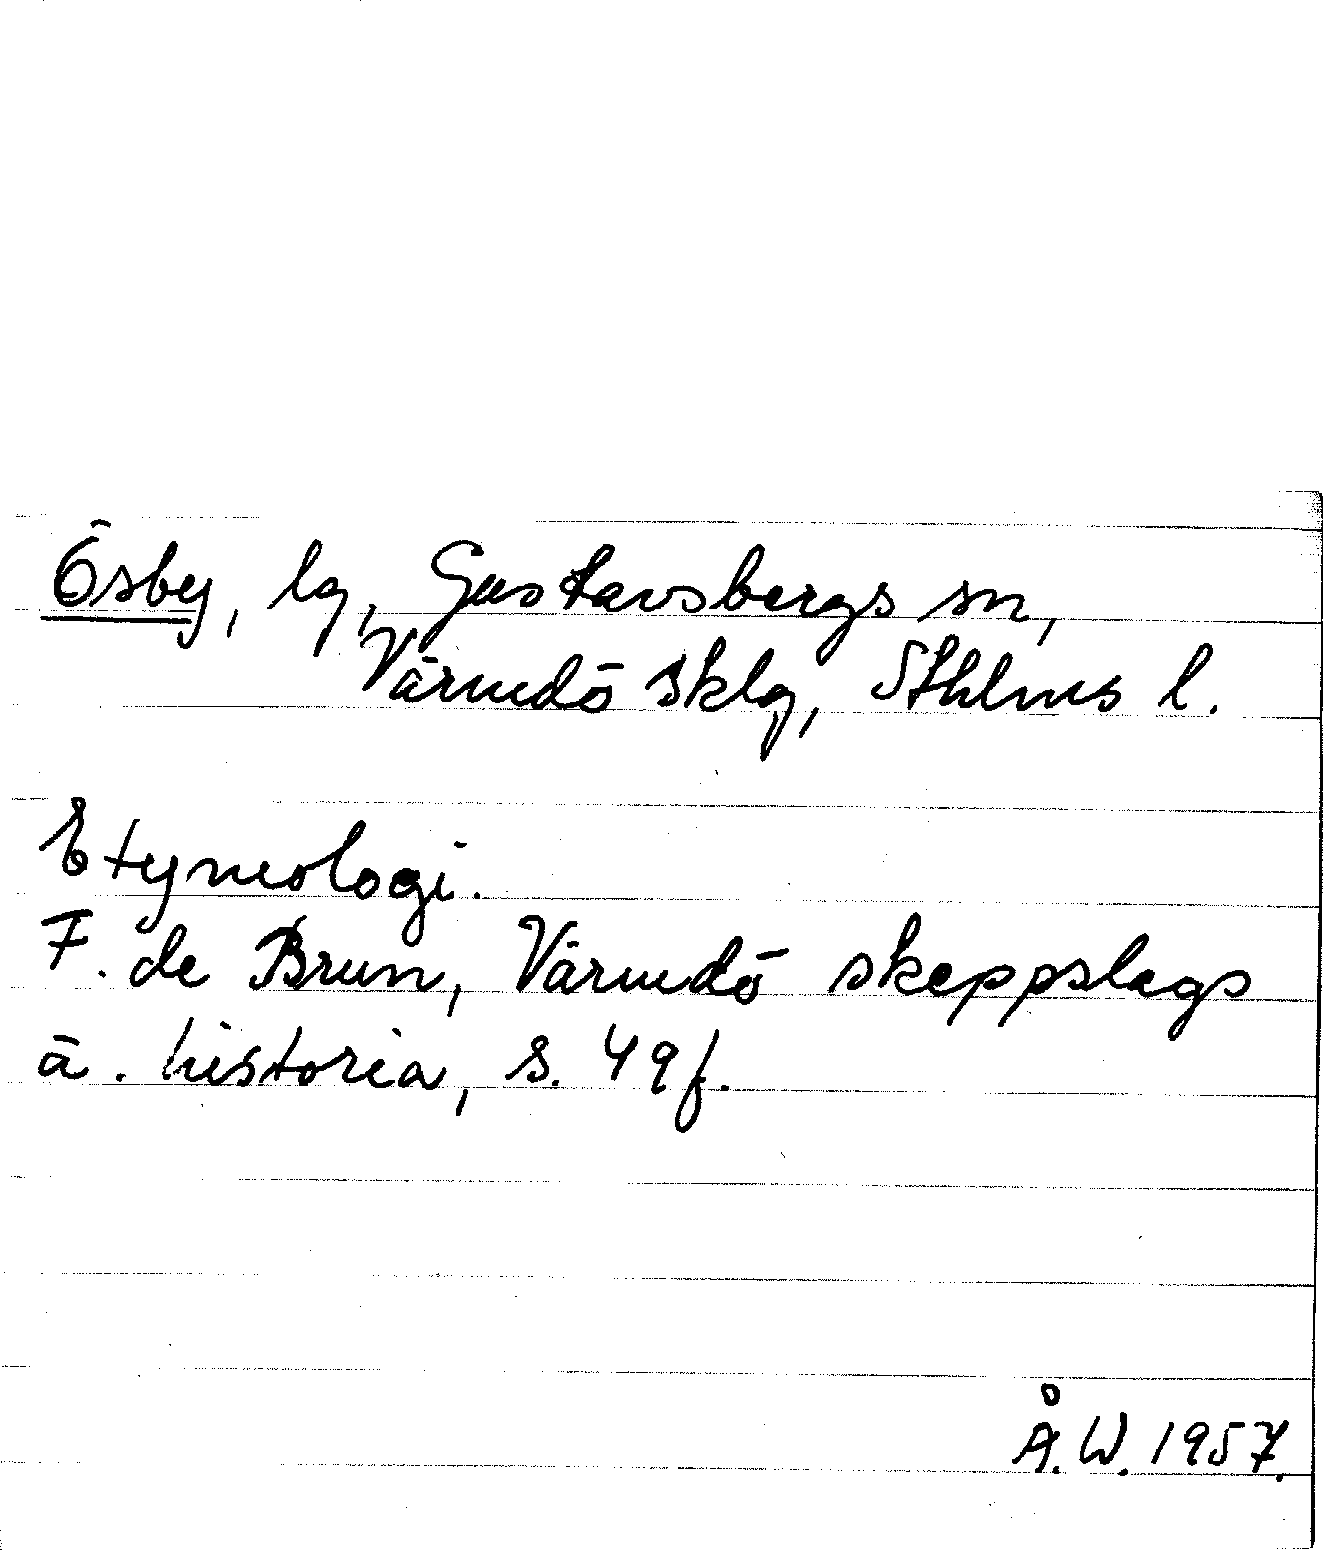 Ösby, lg, Gustavsbergs sn,
Värmdö sklg, Sthlms l.
Etymologi.
F. de Brun, Värmdö skeppslags
ä. historia, s. 49f.
Å.W. 1957.